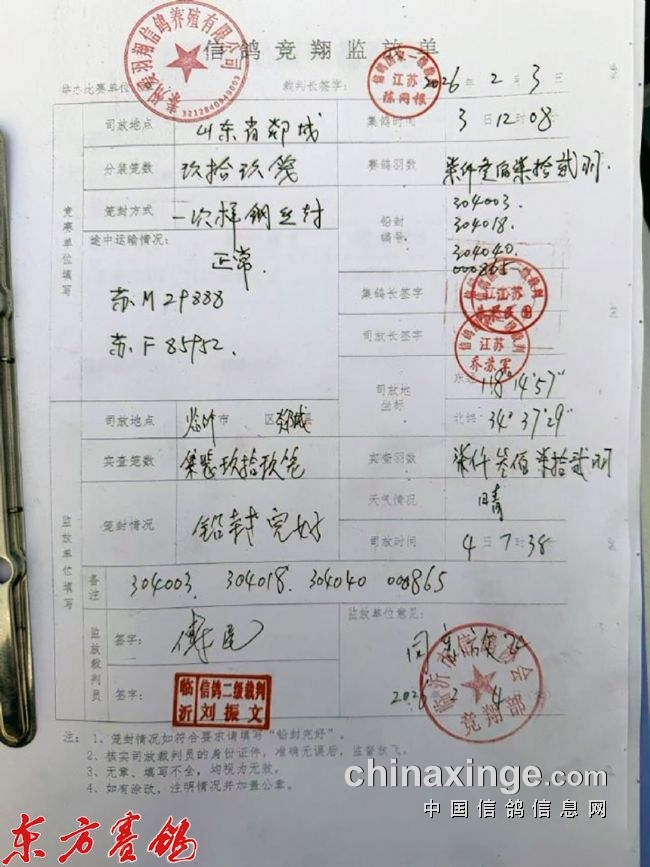 信鸽竞翔监放单
羽翔信鸽养殖有限公司
3212840949003
举办比赛单位
裁判长签字:
信鸽国家一级裁判
江苏
2026年2月3日
司放地点
山东省郯城
集鸽时间
3日12时08
分装笼数
玖拾玖笼
赛鸽羽数
柒仟叁佰柒拾贰羽
笼封方式
一次性钢丝封
铅封编号
304003.
304018.
304040
000865
竞赛单位填写
途中运输情况:
正常
苏M29888
苏F85952.
集鸽长签字
江苏
司放长签字
江苏
乔苏军
司放地坐标
东经118°14'57"
北纬34°37'29"
司放地点
临沂市 区郯城县
实查笼数
集装玖拾玖笼
实查羽数
柒仟叁佰柒拾贰羽
天气情况
晴
笼封情况
铅封完好
司放时间
4日7时38
监放单位填写
备注
304003. 304018. 304040 000865
监放裁判员
签字:
签字:
临沂
信鸽二级裁判
刘振文
监放单位意见:
同意
临沂市信鸽协会
竞翔部
注: 1、笼封情况如符合要求请填写“铅封完好”。
2、核实司放裁判员的身份证件,准确无误后,监督放飞。
3、无章、填写不全,均视为无效。
4、如有涂改,注明情况并加盖公章。
chinaxinge.com
中国信鸽信息网
东方赛鸽